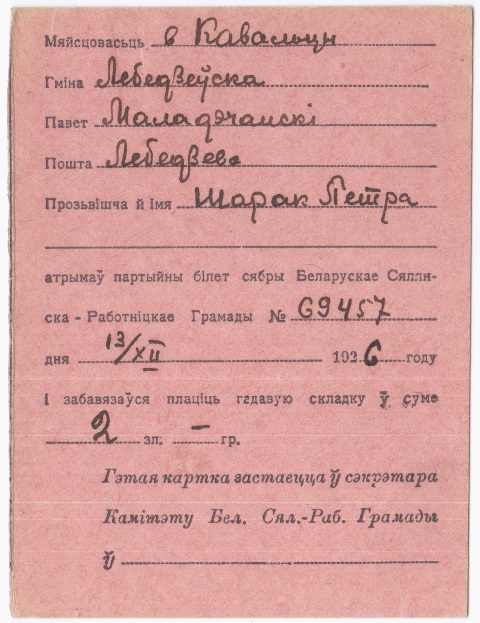 Мяйсцовасьць в Кавальцы
Гміна Лебедзеўска
Павет Маладэчанскі
Пошта Лебедзева
Прозьвішча й імя Шарак Пётра
атрымаў партыйны білет сябры Беларускае Сялян-
ска - Работніцкае Грамады № 69457
дня 13/XII 1926 году
і забавязаўся плаціць гадавую складку ў суме
2 зл; - гр.
Гэтая картка застаецца ў сэкрэтара
Камітэту Бел. Сял.-Раб. Грамады
ў